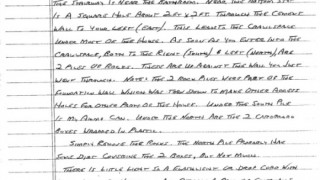 The ... is near the bathroom. Near the ...
is a square hole about 2ft x 2ft through the cement
wall to your left (east). This leads to the crawlspace
under most of the house. As soon as you enter into the
crawlspace, both to the right (south) & left (north), are
2 piles of rocks. These are up against the wall you just
went through. Note: the 2 rock piles were part of the
foundation wall which was torn down to make other access
holes for other parts of the house. Under the south pile
is my ammo can. Under the north are the 2 cardboard
boxes wrapped in plastic.
Simply remove the rocks. The north pile probably has
some dirt covering the 2 boxes, but not much.
There is little light in